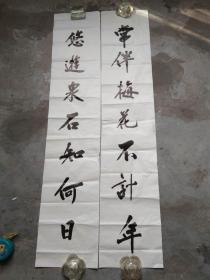 常伴梅花不計年
悠遊泉石知何日